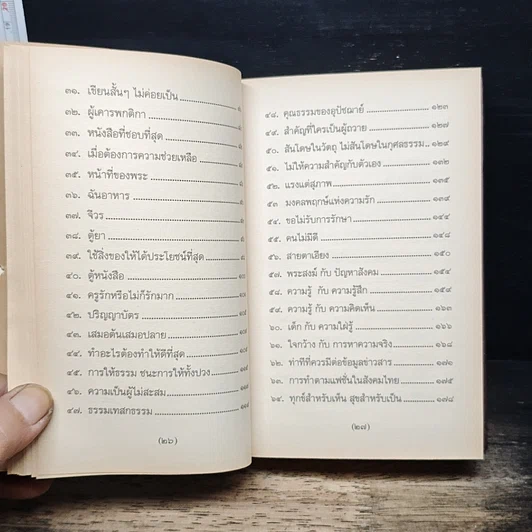 ๓๑. เขียนสั้นๆ ไม่ค่อยเป็น
๓๒. ผู้เคารพกติกา
๓๓. หนังสือที่ชอบที่สุด
๓๔. เมื่อต้องการความช่วยเหลือ
๓๕. หน้าที่ของพระ
๓๖. ฉันอาหาร
๓๗. จีวร
๓๘. ตู้ยา
๓๙. ใช้สิ่งของให้ได้ประโยชน์ที่สุด
๔๐. ตู้หนังสือ
๔๑. ครูรักหรือไม่ก็รักมาก
๔๒. ปริญญาบัตร
๔๓. เสมอต้นเสมอปลาย
๔๔. ทำอะไรต้องทำให้ดีที่สุด
๔๕. การให้ธรรม ชนะการให้ทั้งปวง
๔๖. ความเป็นผู้ไม่สะสม
๔๗. ธรรมเทสกธรรม
(๒๖)
๔๘. คุณธรรมของอุปัชฌาย์ ๑๒๓
๔๙. สำคัญที่ใครเป็นผู้ถวาย ๑๒๗
๕๐. สันโดษในวัตถุ ไม่สันโดษในกุศลธรรม ๑๒๙
๕๑. ไม่ให้ความสำคัญกับตัวเอง ๑๓๒
๕๒. แรงแต่สุภาพ ๑๓๕
๕๓ มงคลพฤกษ์แห่งความรัก ๑๓๙
๕๔. ขอไม่รับการรักษา ๑๔๔
๕๕. คนไม่มีดี ๑๔๘
๕๖. สายตาเอียง ๑๕๐
๕๗. พระสงฆ์ กับ ปัญหาสังคม ๑๕๔
๕๘. ความรู้ กับ ความรู้สึก ๑๕๙
๕๙. ความรู้ กับ ความคิดเห็น ๑๖๓
๖๐. เด็ก กับ ความใฝ่รู้ ๑๖๖
๖๑. ใจกว้าง กับ การหาความจริง ๑๖๘
๖๒. ท่าทีที่ควรมีต่อข้อมูลข่าวสาร ๑๗๑
๖๓. การทำตามแฟชั่นในสังคมไทย ๑๗๕
๖๔. ทุกข์สำหรับเห็น สุขสำหรับเป็น ๑๗๘
(๒๗)